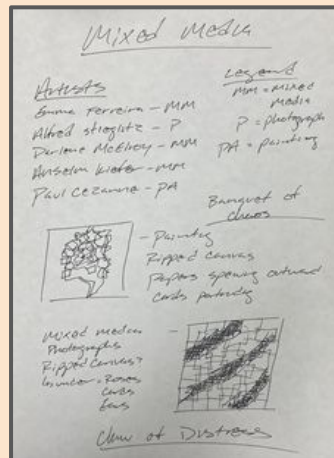 Mixed Media
Artists
Emma Ferreira - MM
Alfred Stieglitz - P
Darlene McElroy - MM
Anselm Kiefer - MM
Paul Cezanne - PA
Legend
MM = Mixed
Media
P = photograph
PA = painting
Banquet of
Chaos
- Painting
Ripped canvas
Papers spewing outward
Cards
Mixed media -
Photographs
Ripped Canvas?
Roses
Cards
Claw of Distress